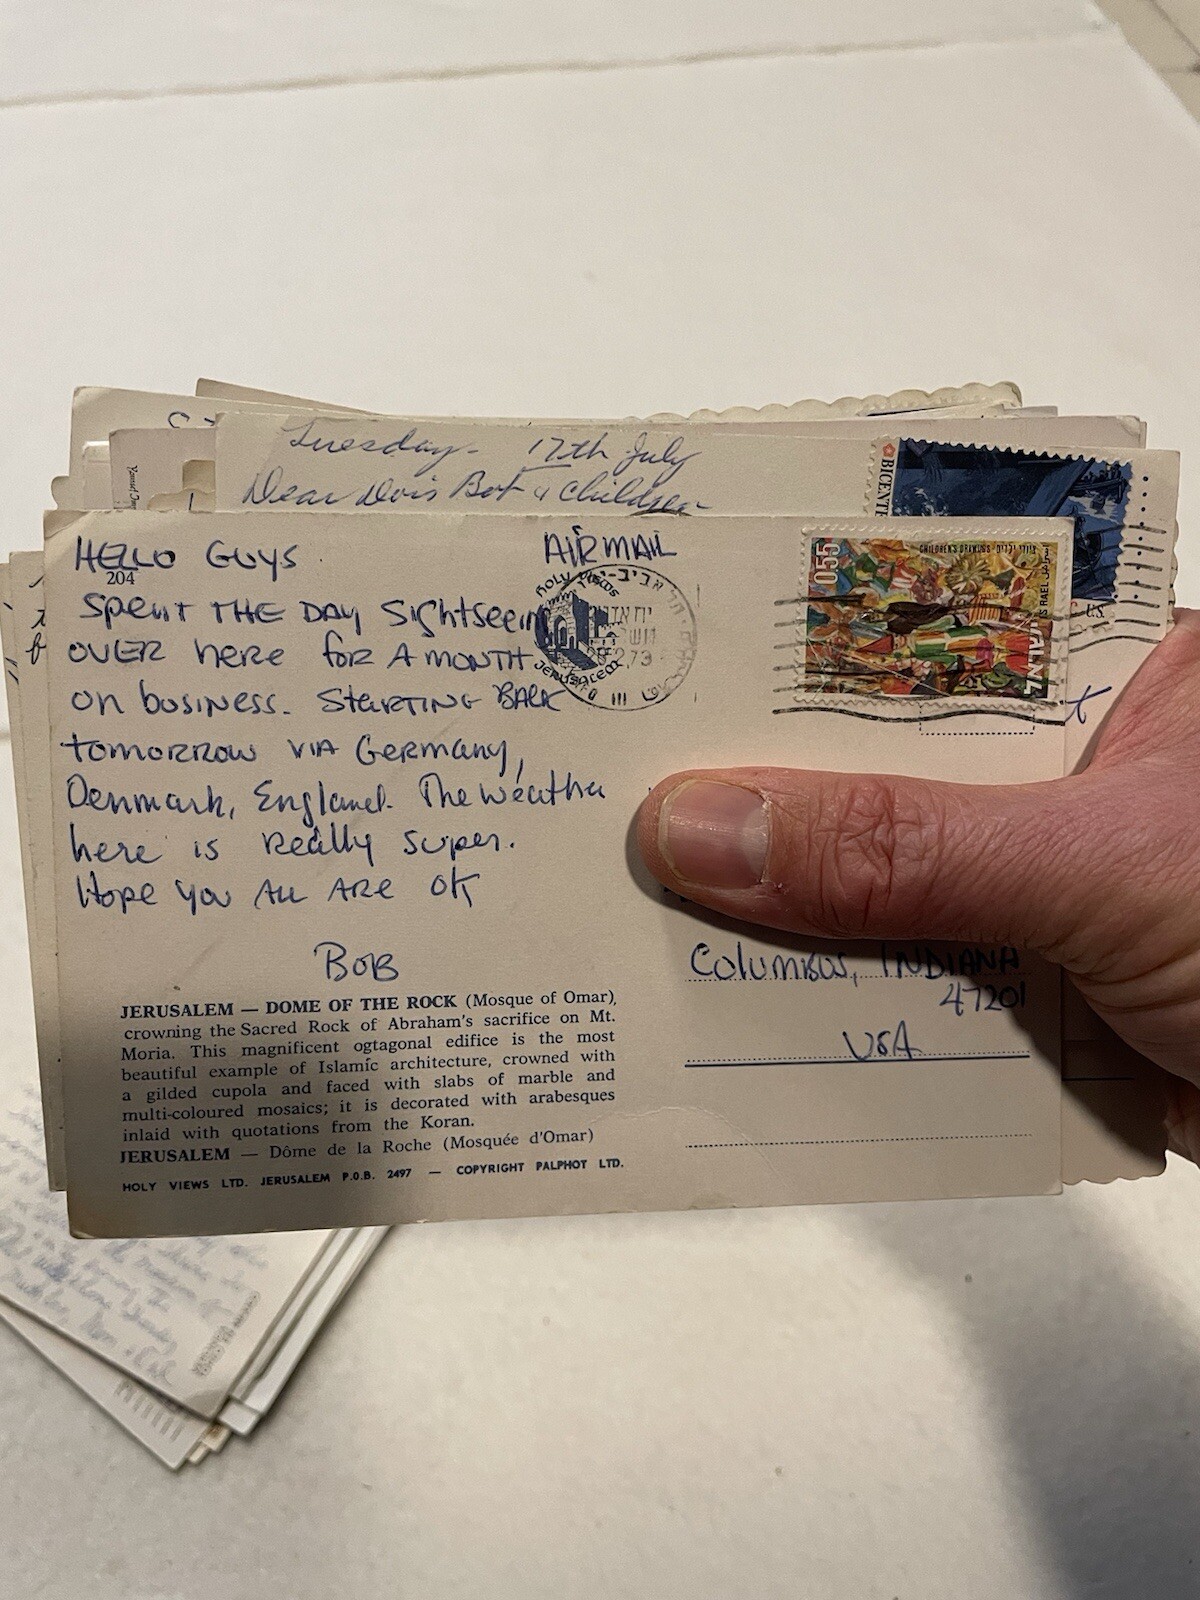 Tuesday - 17th July
Dear Doris Bob & Children
BICENT
U.S.
HELLO GUYS
AIRMAIL
204
SPENT THE DAY Sightseein
OVER here for A MONTH
on business. STARTING BACK
tomorrow VIA Germany,
Denmark, England. The weather
here is Really super.
Hope you ALL ARE OK
BOB
HOLY VIEWS
JERUSALEM
תל אביב-יפו
2.73
0.55
CHILDREN'S DRAWINGS
ISRAEL
ישראל
اسرائيل
Columbus, INDIANA
47201
USA
JERUSALEM — DOME OF THE ROCK (Mosque of Omar),
crowning the Sacred Rock of Abraham's sacrifice on Mt.
Moria. This magnificent ogtagonal edifice is the most
beautiful example of Islamic architecture, crowned with
a gilded cupola and faced with slabs of marble and
multi-coloured mosaics; it is decorated with arabesques
inlaid with quotations from the Koran.
JERUSALEM — Dôme de la Roche (Mosquée d'Omar)
HOLY VIEWS LTD. JERUSALEM P.O.B. 2497 — COPYRIGHT PALPHOT LTD.